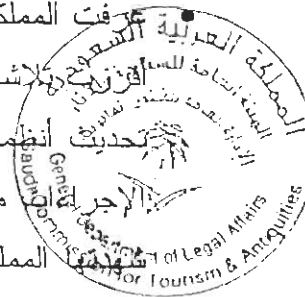 عرفت المملك
تحديث أنظم
الإجراءات م
شهدتها المملك
المملكة العربية السعودية
الهيئة العامة للسيا
General Department of Legal Affairs
Saudi Commission for Tourism & Antiquities